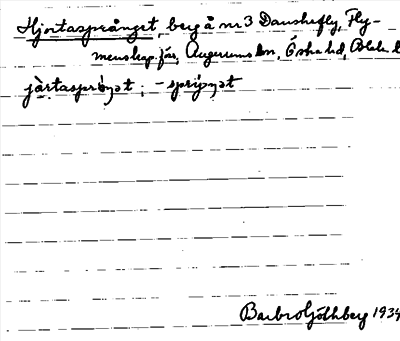 Hjortasprånget, berg å nr 3 Danskefly, Fly-
menskap.för, Augerums sn, Östra hd, Blek. l
jòrtaspröŋət; - spriŋət
Barbro Göthberg 1934